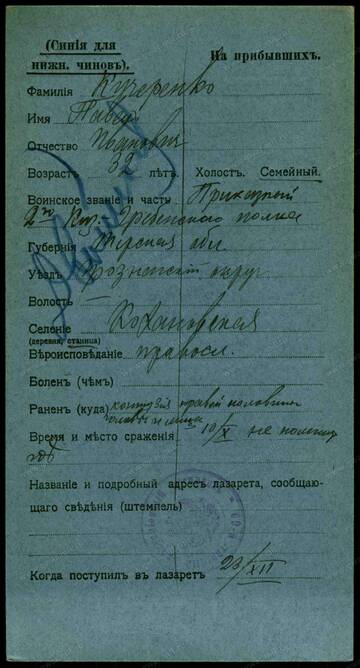 (Синія для
нижн. чиновъ).
На прибывшихъ.
Фамилія Кучеренко
Имя Павелъ
Отчество Ивановичъ
Возрастъ 32 лѣтъ. Холост. Семейный.
Воинское званіе и часть Приказный
2го Гребенского полка
Губернія Терская обл
Уѣздъ округ
Волость —
Селеніе Кохановская
(деревня, станица)
Вѣроисповѣданіе правосл.
Боленъ (чѣмъ)
Раненъ (куда) контузія правой половины
головы и лица
Время и мѣсто сраженія 10/X не помнит
гдѣ
Названіе и подробный адресъ лазарета, сообщаю-
щаго свѣдѣнія (штемпель)
Когда поступилъ въ лазаретъ 23/XII